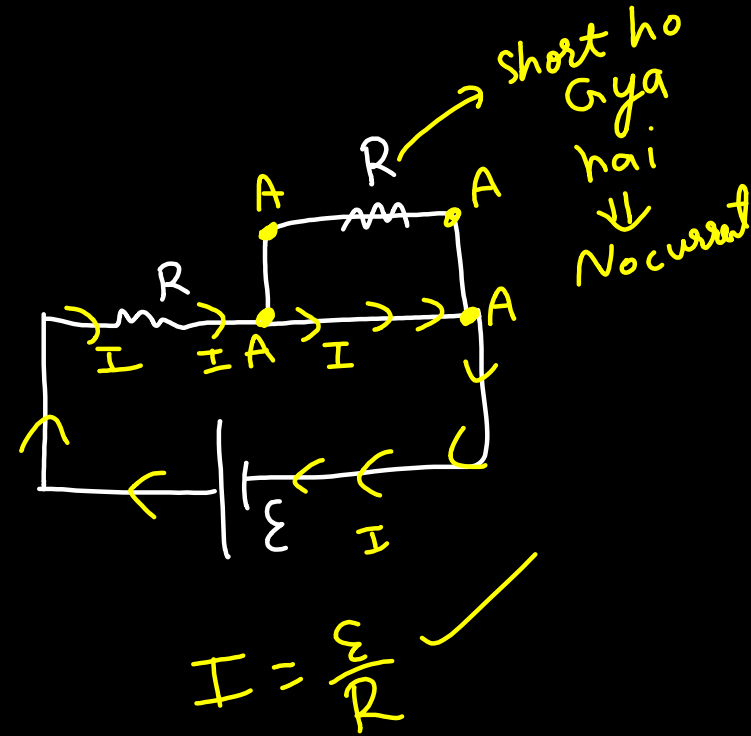 short ho
Gya
hai
⇓
No current
R
A
A
R
I
I
A
I
A
ε
I
I = ε/R